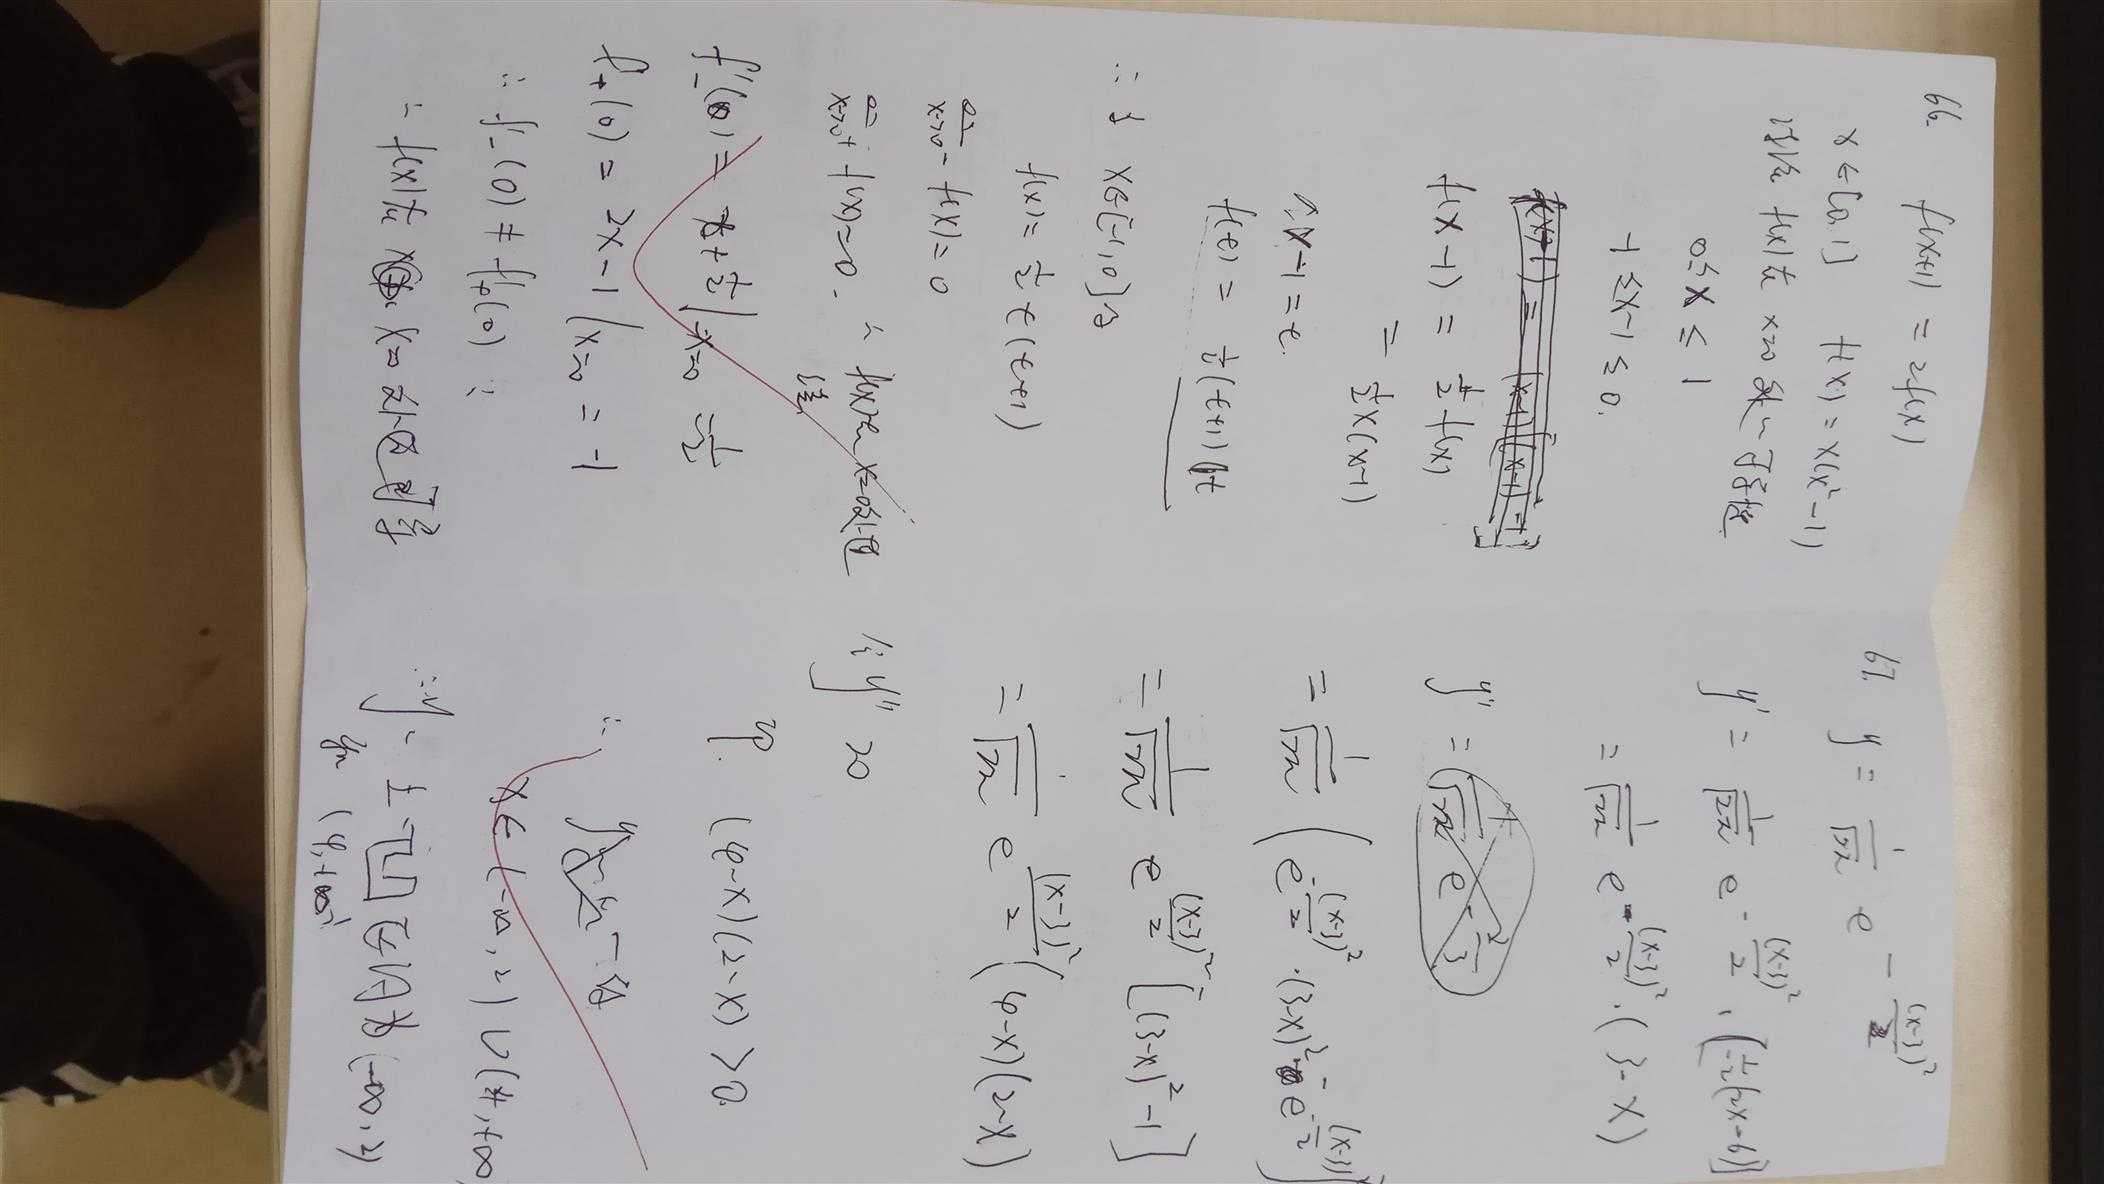 66. f(x+1) = 2f(x)
x∈[0,1] f(x) = x(x²-1)
讨论 f(x)在 x=0 处的可导性
0≤x≤1
-1≤x-1≤0.
f(x-1) = ½f(x)
= ½x(x-1)
令x-1=t.
f(t) = ½(t+1)t
∴当 x∈[-1,0]时
f(x) = ½x(x+1)
f(x)=0
f(x)=0. ∴f(x)在 x=0处
连续
f'₋(0) = x+½|x=0 = ½
f₊(0) = 2x-1|x=0 = -1
∴f₋(0) ≠ f₊(0)
∴f(x)在 x=0 处不可导
67. y = 1/√2π e^-(x-3)²/2
y' = 1/√2π e^-(x-3)²/2 · (-½(2x-6))
= 1/√2π e^-(x-3)²/2 · (3-x)
y'' =
= 1/√2π (e^-(x-3)²/2 · (3-x)² - e^-(x-3)²/2)
= 1/√2π e^-(x-3)²/2 [(3-x)²-1]
= 1/√2π e^-(x-3)²/2 (4-x)(2-x)
令y''>0
即 (4-x)(2-x)>0.
∴
x∈(-∞,2)∪(4,+∞)
∴y 上凹区间为(-∞,2)
和 (4,+∞)